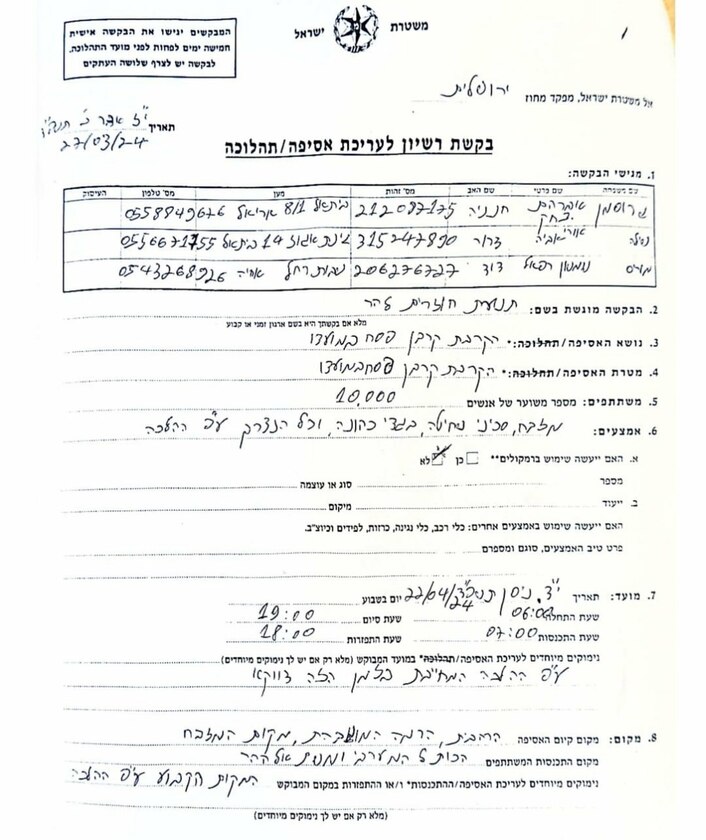 המבקשים יגישו את הבקשה אישית
חמישה ימים לפחות לפני מועד התהלוכה.
לבקשה יש לצרף שלושה העתקים
משטרת ישראל
אל משטרת ישראל, מפקד מחוז ירושלים
תאריך י"ז אדר ב'
27/03/24
בקשת רשיון לעריכת אסיפה/תהלוכה
1. מגישי הבקשה:
שם משפחה שם פרטי שם האב מס' זהות מען מס' טלפון העיסוק
אברהם חנניה 212087175 8/1 אריאל 0558849676
יצחק
דרור 315247890 גינת אגוז 14 בית אל 0556671755
מוריס נעמאן רפאל דוד 206276727 0543268926
2. הבקשה מוגשת בשם: תנועת חוזרים להר
מלא אם בקשתך היא בשם ארגון זמני או קבוע
3. נושא האסיפה/תהלוכה:* הקרבת קרבן פסח במועדו
4. מטרת האסיפה/תהלוכה:* הקרבת קרבן פסח במועדו
5. משתתפים: מספר משוער של אנשים 10,000
6. אמצעים: מזבח, סכיני שחיטה, בגדי כהונה, וכל הנצרך ע"פ ההלכה
א. האם ייעשה שימוש ברמקולים** כן לא
מספר סוג או עוצמה
ב. ייעוד מיקום
האם ייעשה שימוש באמצעים אחרים: כלי רכב, כלי נגינה, כרזות, לפידים וכיוצ"ב.
פרט טיב האמצעים, סוגם ומספרם
7. מועד: תאריך י"ד ניסן 22/04/24 יום בשבוע
שעת התחלה 06:00 שעת סיום 19:00
שעת התכנסות 07:00 שעת התפזרות 18:00
נימוקים מיוחדים לעריכת האסיפה/תהלוכה* במועד המבוקש (מלא רק אם יש לך נימוקים מיוחדים)
ע"פ ההלכה המחייבת בזמן הזה דווקא
8. מקום: מקום קיום האסיפה הר הבית, הרמה המוגבהת, מקום המזבח
מקום התכנסות המשתתפים הכותל המערבי ומשם אל ההר
נימוקים מיוחדים לעריכת האסיפה/ההתכנסות* ו/או ההתפזרות במקום המבוקש המקום הקבוע ע"פ ההלכה
(מלא רק אם יש לך נימוקים מיוחדים)